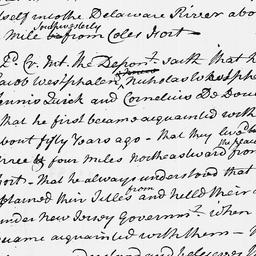 self into the Delaware River abo
southwesterly
Mile from Coles Fort
Int. the Depont. saith that h
Jacob Westphalen, Nicholas Westphal
Dennis Quick and Cornelius De Dou
that he first became acquainted with
about fifty Years ago - that they live
the place
three by four Miles northeastward from
Fort - that he always understood that
from
claimed their Titles and held their
under New Jersey Governmt. when
became acquainted with them -
and believes